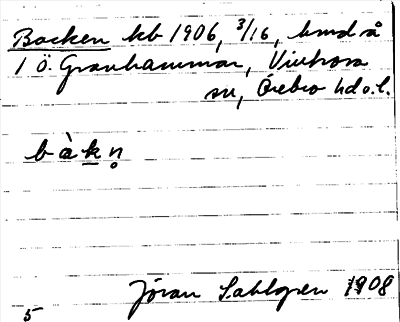 Backen kb 1906, 3/16, hmd å
1 Ö. Granhammar, Vintrosa
sn, Örebro hd o. l.
b à k n̥
Jöran Sahlgren 1908
5